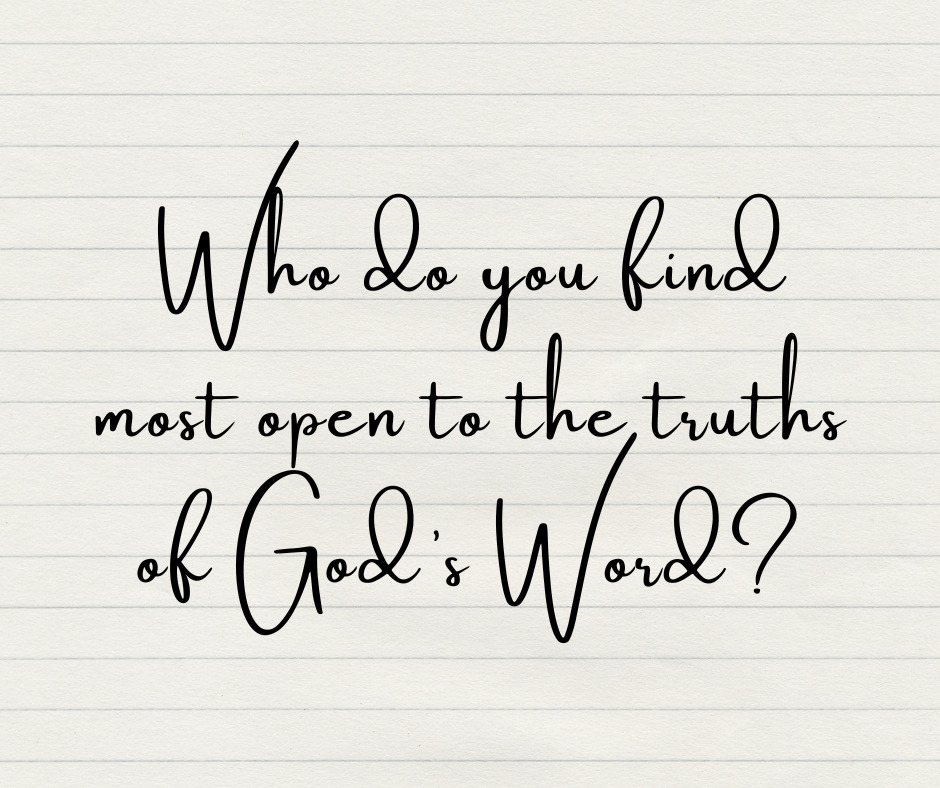 Who do you find
most open to the truths
of God's Word?